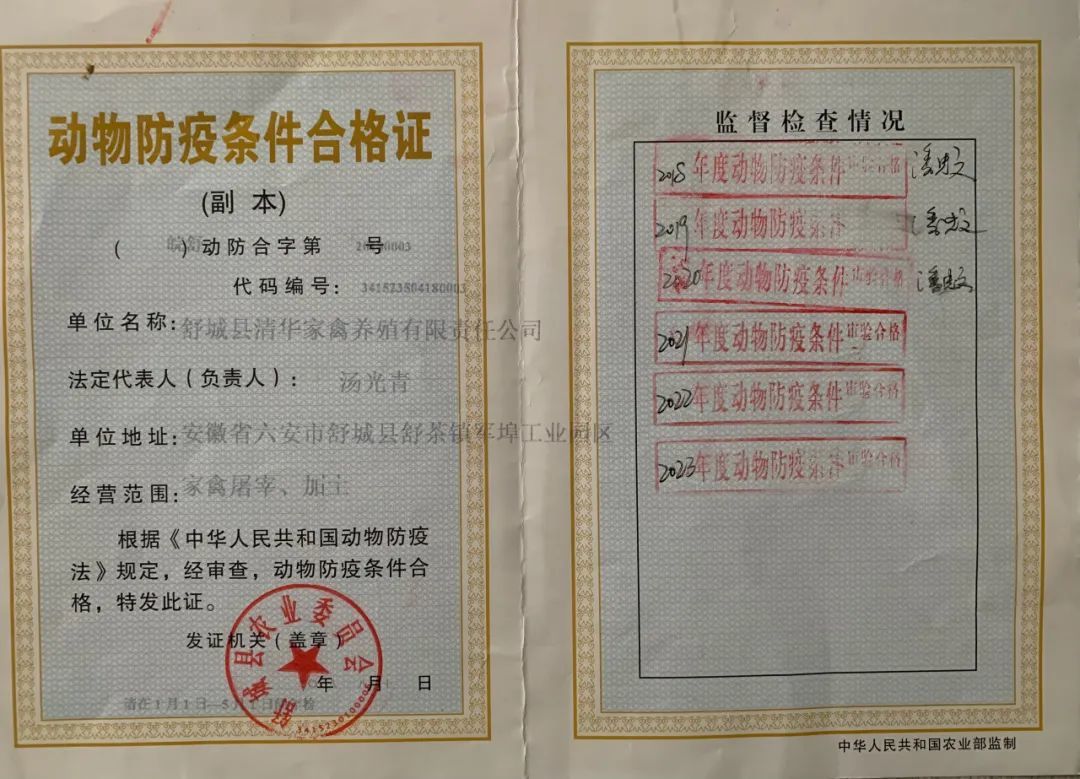 动物防疫条件合格证
(副 本)
( 皖舒 ) 动防合字第 号
代码编号: 341523504180003
单位名称: 舒城县清华家禽养殖有限责任公司
法定代表人(负责人): 汤光青
单位地址: 安徽省六安市舒城县舒茶镇军埠工业园区
经营范围: 家禽屠宰、加工
根据《中华人民共和国动物防疫
法》规定,经审查,动物防疫条件合
格,特发此证。
发证机关(盖章)
舒城县农业委员会
年 月 日
请在1月1日—5月
监督检查情况
2018年度动物防疫条件审验合格
2019年度动物防疫条件
2020年度动物防疫条件审验合格
2021年度动物防疫条件审验合格
2022年度动物防疫条件审验合格
2023年度动物防疫条件审验合格
中华人民共和国农业部监制